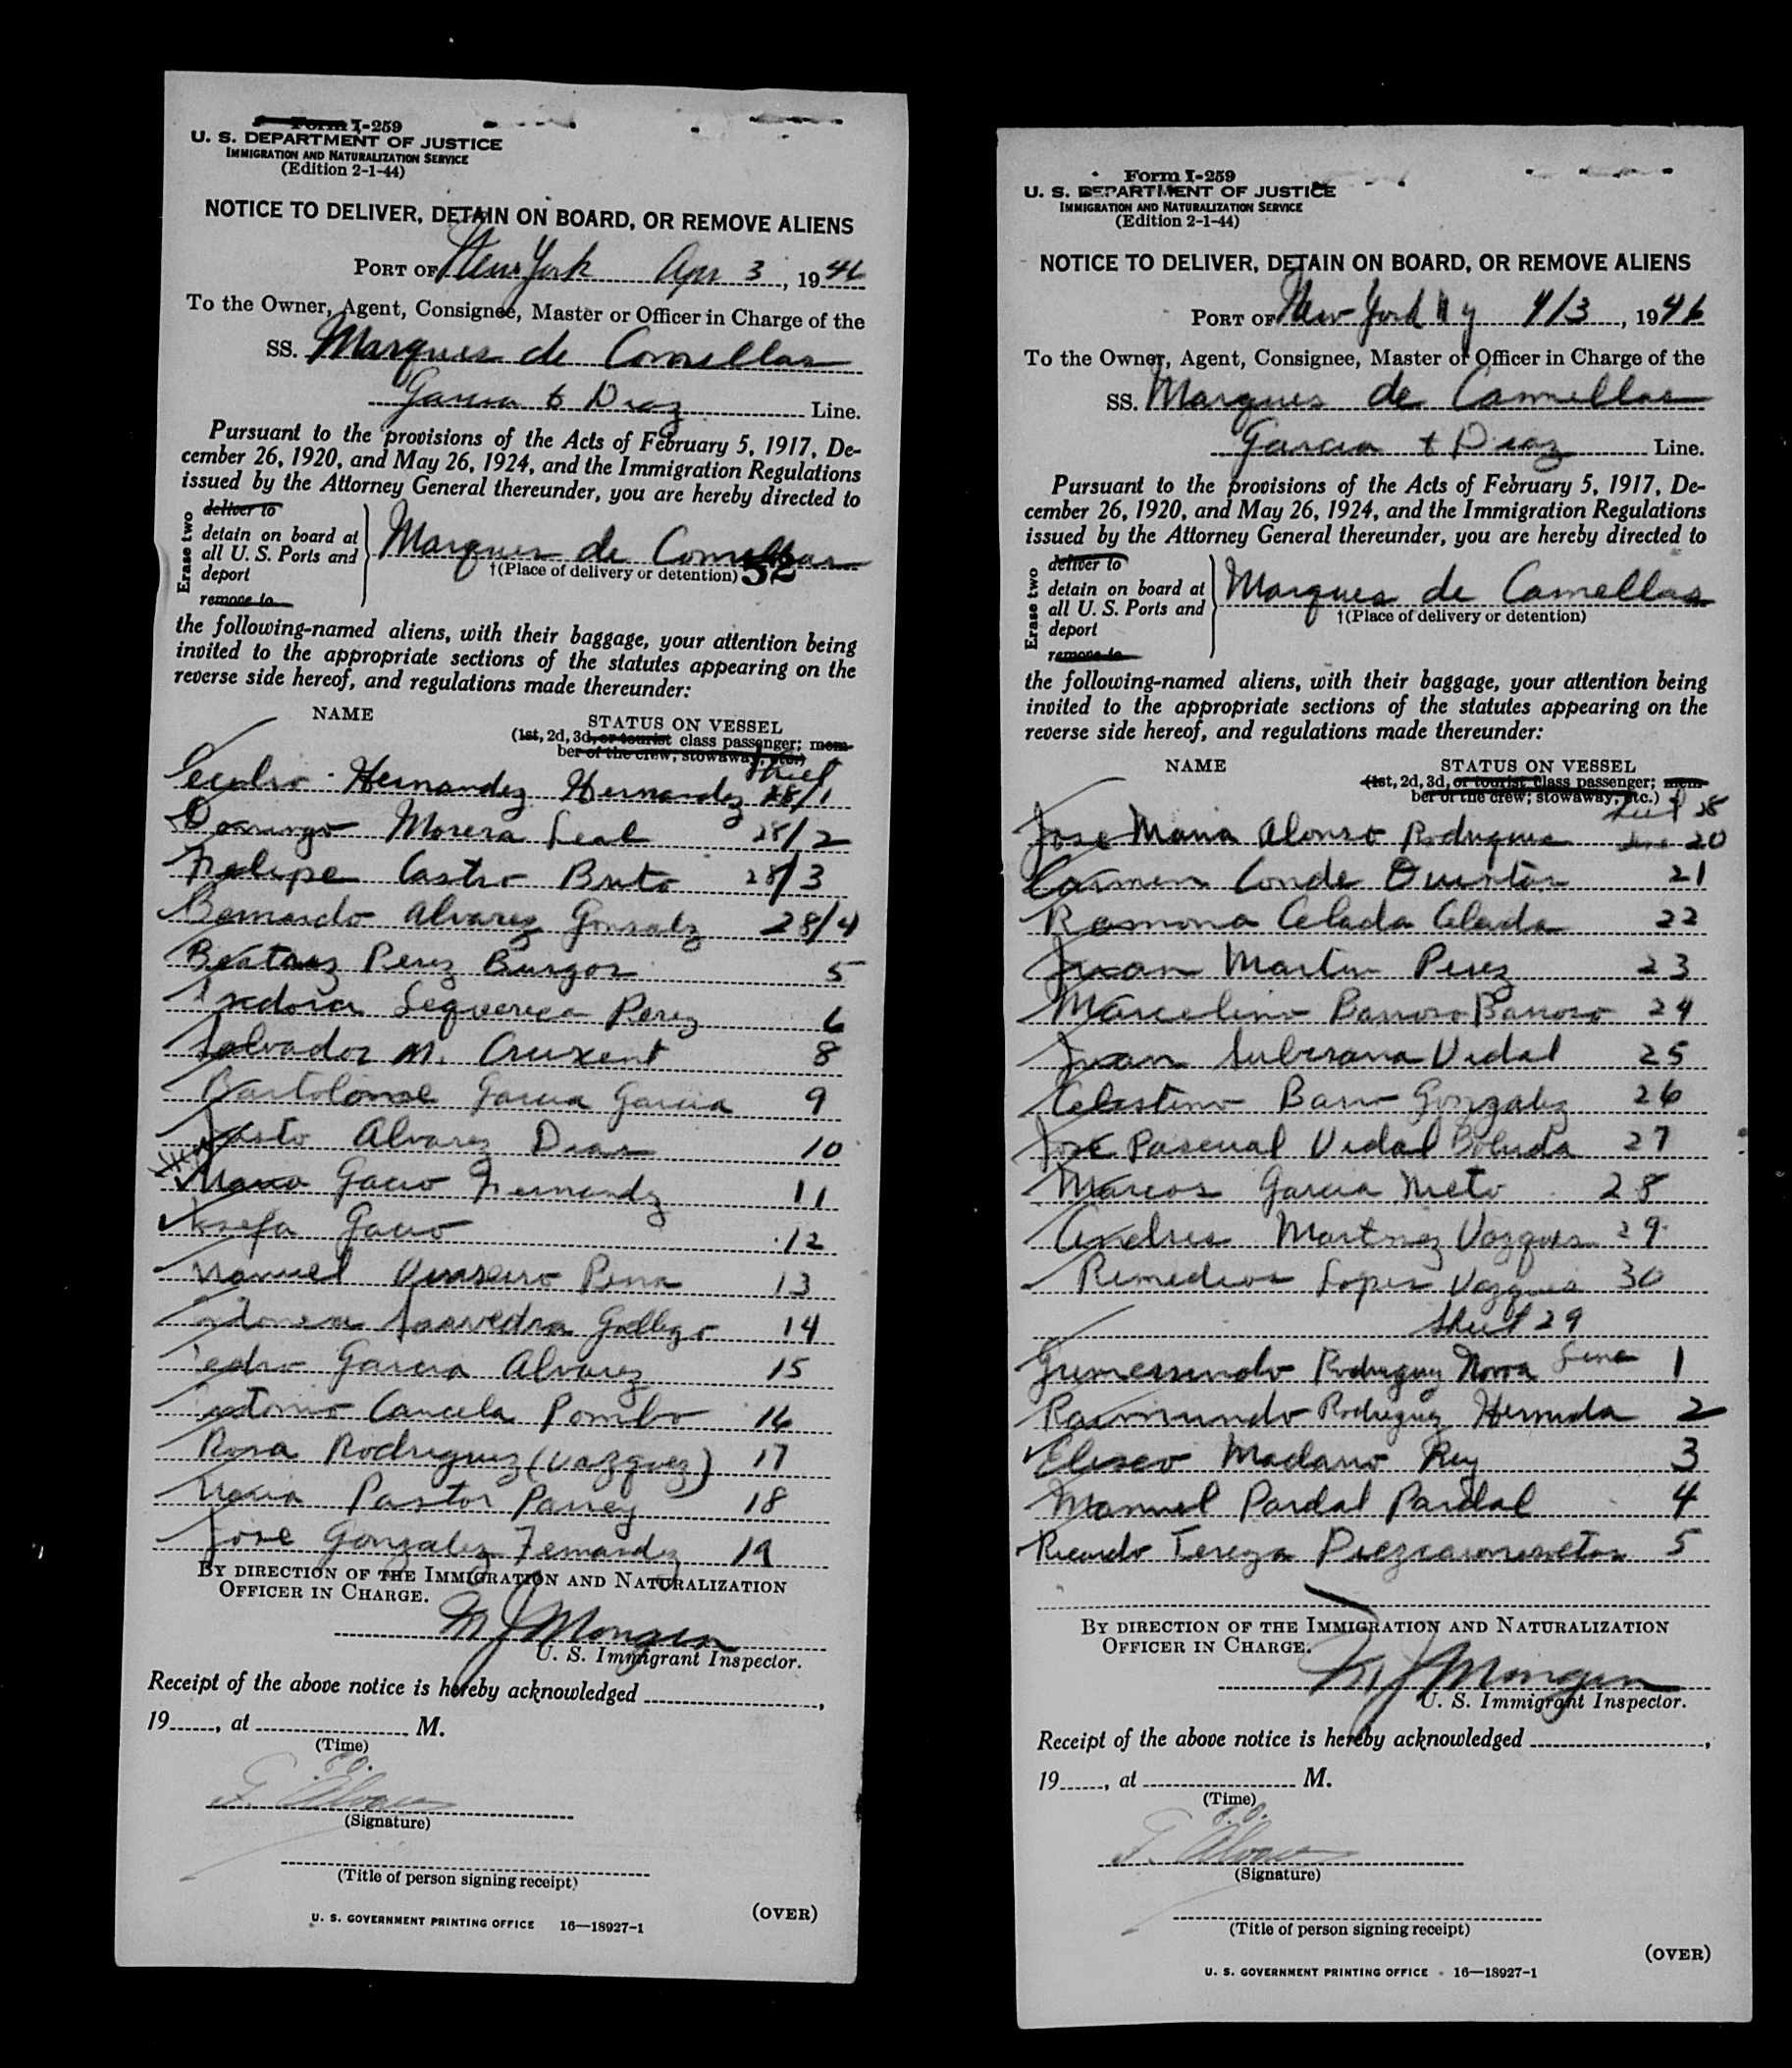 Form I-259
U. S. DEPARTMENT OF JUSTICE
IMMIGRATION AND NATURALIZATION SERVICE
(Edition 2-1-44)
NOTICE TO DELIVER, DETAIN ON BOARD, OR REMOVE ALIENS
PORT OF New York Apr 3, 1946
To the Owner, Agent, Consignee, Master or Officer in Charge of the
SS. Marques de Comillas
Garcia & Diaz Line.
Pursuant to the provisions of the Acts of February 5, 1917, De-
cember 26, 1920, and May 26, 1924, and the Immigration Regulations
issued by the Attorney General thereunder, you are hereby directed to
Erase two
deliver to
detain on board at
all U. S. Ports and
deport
remove to
Marques de Comillas
†(Place of delivery or detention) 52
the following-named aliens, with their baggage, your attention being
invited to the appropriate sections of the statutes appearing on the
reverse side hereof, and regulations made thereunder:
NAME
STATUS ON VESSEL
(1st, 2d, 3d, or tourist class passenger; mem-
ber of the crew; stowaway, etc.)
Sheet
Hernandez Hernandez 28/1
Domingo Morera Leal 28/2
Felipe Castro Brito 28/3
Bernardo Alvarez Gonsalz 28/4
Beatriz Perez Burgos 5
Isidora Perez 6
Salvador M. Cruxent 8
Bartolome Garcia Garcia 9
Justo Alvarez Dias 10
Maria Gacio Fernandz 11
Josefa Gacio 12
Manuel Pena 13
Antonia Saavedra Gallego 14
Pedro Garcia Alvarez 15
Antonio Cancela Pombo 16
Rosa Rodriguez (Vazquez) 17
Maria Pastor 18
Jose Gonzalez Fernandez 19
BY DIRECTION OF THE IMMIGRATION AND NATURALIZATION
OFFICER IN CHARGE.
M J Mongan
U. S. Immigrant Inspector.
Receipt of the above notice is hereby acknowledged ,
19 , at M.
(Time)
(Signature)
(Title of person signing receipt)
(OVER)
U. S. GOVERNMENT PRINTING OFFICE 16—18927-1
Form I-259
U. S. DEPARTMENT OF JUSTICE
IMMIGRATION AND NATURALIZATION SERVICE
(Edition 2-1-44)
NOTICE TO DELIVER, DETAIN ON BOARD, OR REMOVE ALIENS
PORT OF New York N y 4/3, 1946
To the Owner, Agent, Consignee, Master or Officer in Charge of the
SS. Marques de Comillas
Garcia & Diaz Line.
Pursuant to the provisions of the Acts of February 5, 1917, De-
cember 26, 1920, and May 26, 1924, and the Immigration Regulations
issued by the Attorney General thereunder, you are hereby directed to
Erase two
deliver to
detain on board at
all U. S. Ports and
deport
remove to
Marques de Comillas
†(Place of delivery or detention)
the following-named aliens, with their baggage, your attention being
invited to the appropriate sections of the statutes appearing on the
reverse side hereof, and regulations made thereunder:
NAME
STATUS ON VESSEL
(1st, 2d, 3d, or tourist class passenger; mem-
ber of the crew; stowaway, etc.)
Sheet 28
Jose Maria Alonso Rodriguez Line 20
Carmen Conde Quintan 21
Ramona Celada Celada 22
Juan Martin Perez 23
Marcelino Barroso Barroso 24
Juan Suberana Vidal 25
Celestino Barro Gonzalez 26
Jose Pascual Vidal Boluda 27
Marcos Garcia Nieto 28
Andres Martinez Vazques 29
Remedios Lopez Vazques 30
Sheet 29
Gumersindo Rodriguez Line 1
Raimundo Rodriguez Hermida 2
Eliseo Madario Rey 3
Manuel Pardal Pardal 4
Ricardo 5
BY DIRECTION OF THE IMMIGRATION AND NATURALIZATION
OFFICER IN CHARGE.
M J Mongan
U. S. Immigrant Inspector.
Receipt of the above notice is hereby acknowledged ,
19 , at M.
(Time)
(Signature)
(Title of person signing receipt)
(OVER)
U. S. GOVERNMENT PRINTING OFFICE 16—18927-1